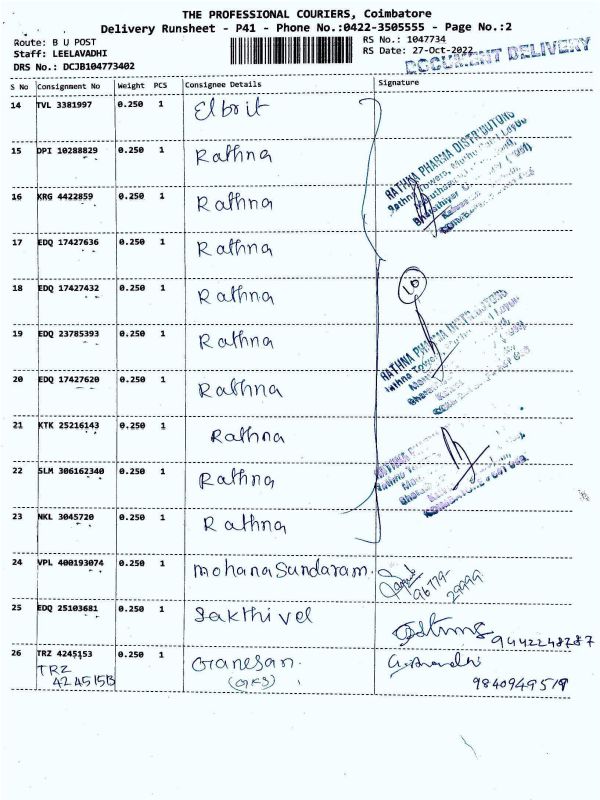 THE PROFESSIONAL COURIERS, Coimbatore
Delivery Runsheet - P41 - Phone No.:0422-3505555 - Page No.:2
Route: B U POST
RS No.: 1047734
Staff: LEELAVADHI
RS Date: 27-Oct-2022
DOCUMENT DELIVERY
DRS No.: DCJB104773402
S No Consignment No Weight PCS Consignee Details Signature
14 TVL 3381997 0.250 1 Elbrit
RATHNA PHARMA DISTRIBUTORS
15 DPI 10288829 0.250 1 Rathna
16 KRG 4422859 0.250 1 Rathna
17 EDQ 17427636 0.250 1 Rathna
18 EDQ 17427432 0.250 1 Rathna
10
RATHNA PHARMA DISTRIBUTORS
19 EDQ 23785393 0.250 1 Rathna
20 EDQ 17427620 0.250 1 Rathna
21 KTK 25216143 0.250 1 Rathna
22 SLM 306162340 0.250 1 Rathna
23 NKL 3045720 0.250 1 Rathna
24 VPL 400193074 0.250 1 mohanaSundaram.
96779
29999
25 EDQ 25103681 0.250 1 Sakthivel
9442248787
26 TRZ 4245153 0.250 1 Ganesan.
TRZ
4245153
(GKS)
9840949519